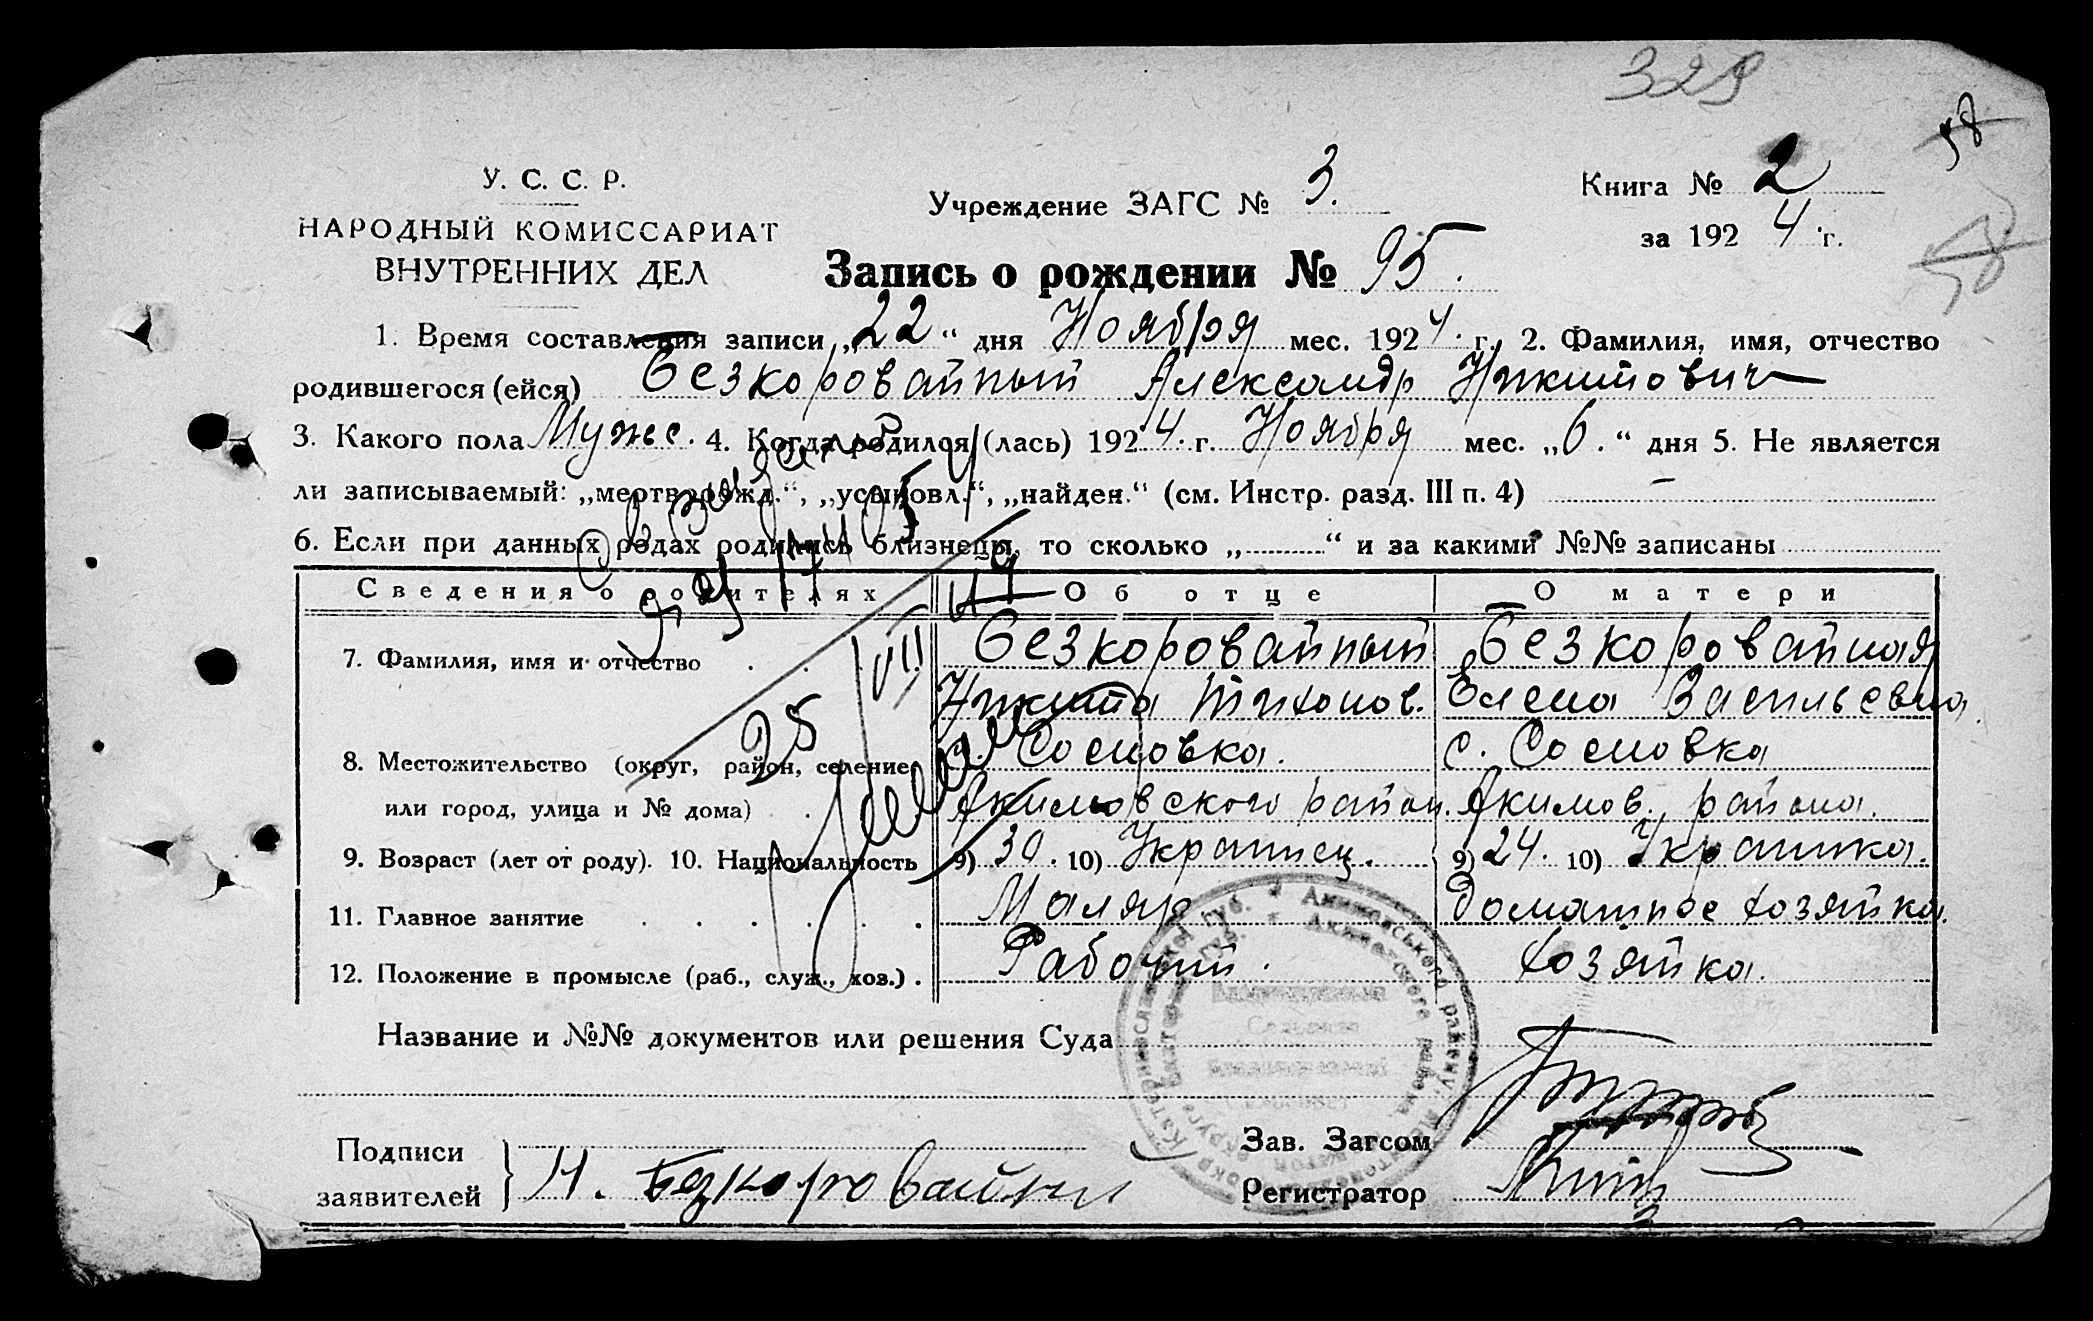 329
58
У. С. С. Р.
НАРОДНЫЙ КОМИССАРИАТ
ВНУТРЕННИХ ДЕЛ
Учреждение ЗАГС № 3.
Книга № 2
за 1924 г.
58
Запись о рождении № 95.
1. Время составления записи „22“ дня Ноября мес. 1924. г. 2. Фамилия, имя, отчество
родившегося (ейся) Безкоровайный Александр Никитович
3. Какого пола Мужс. 4. Когда родился (лась) 1924. г. Ноября мес. „6.“ дня 5. Не является
ли записываемый: „мертворожд.“, „усыновл.“, „найден.“ (см. Инстр. разд. III п. 4) –
6. Если при данных родах родились близнецы, то сколько „..........“ и за какими №№ записаны
Сведения о родителях Об отце О матери
7. Фамилия, имя и отчество Безкоровайный Безкоровайная
Никита Тихонов. Елена Васильевна.
8. Местожительство (округ, район, селение с. Сосновка. с. Сосновка
или город, улица и № дома) Акимовского район. Акимов. района.
9. Возраст (лет от роду). 10. Национальность 9) 30. 10) Украинец. 9) 24. 10) Украинка.
11. Главное занятие Маляр Домашнее хозяйка.
12. Положение в промысле (раб., служ., хоз.) Рабочий. хозяйка.
25/VII
Название и №№ документов или решения Суда
Подписи
заявителей
Н. Безкоровайний
Зав. Загсом
Регистратор